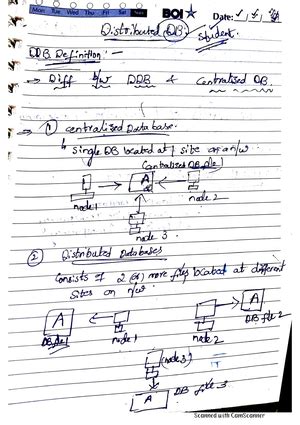 Mon Tue Wed Thu Fri Sat
BOI
Date:
Distributed DB:
Student.
DDB Definition:-
→ Diff b/w DDB & Centralised DB.
→ ① Centralized Database.
↳ single DB located at 1 site on n/w.
Centralized DB file 1
A
node 1
node 2
node 3.
② Distributed Databases
Consists of 2 (or) more files located at different
sites on n/w.
A
A
DB file 2
DB file 1
node 1
node 2
(node 3)
A
DB file 3
Scanned with CamScanner